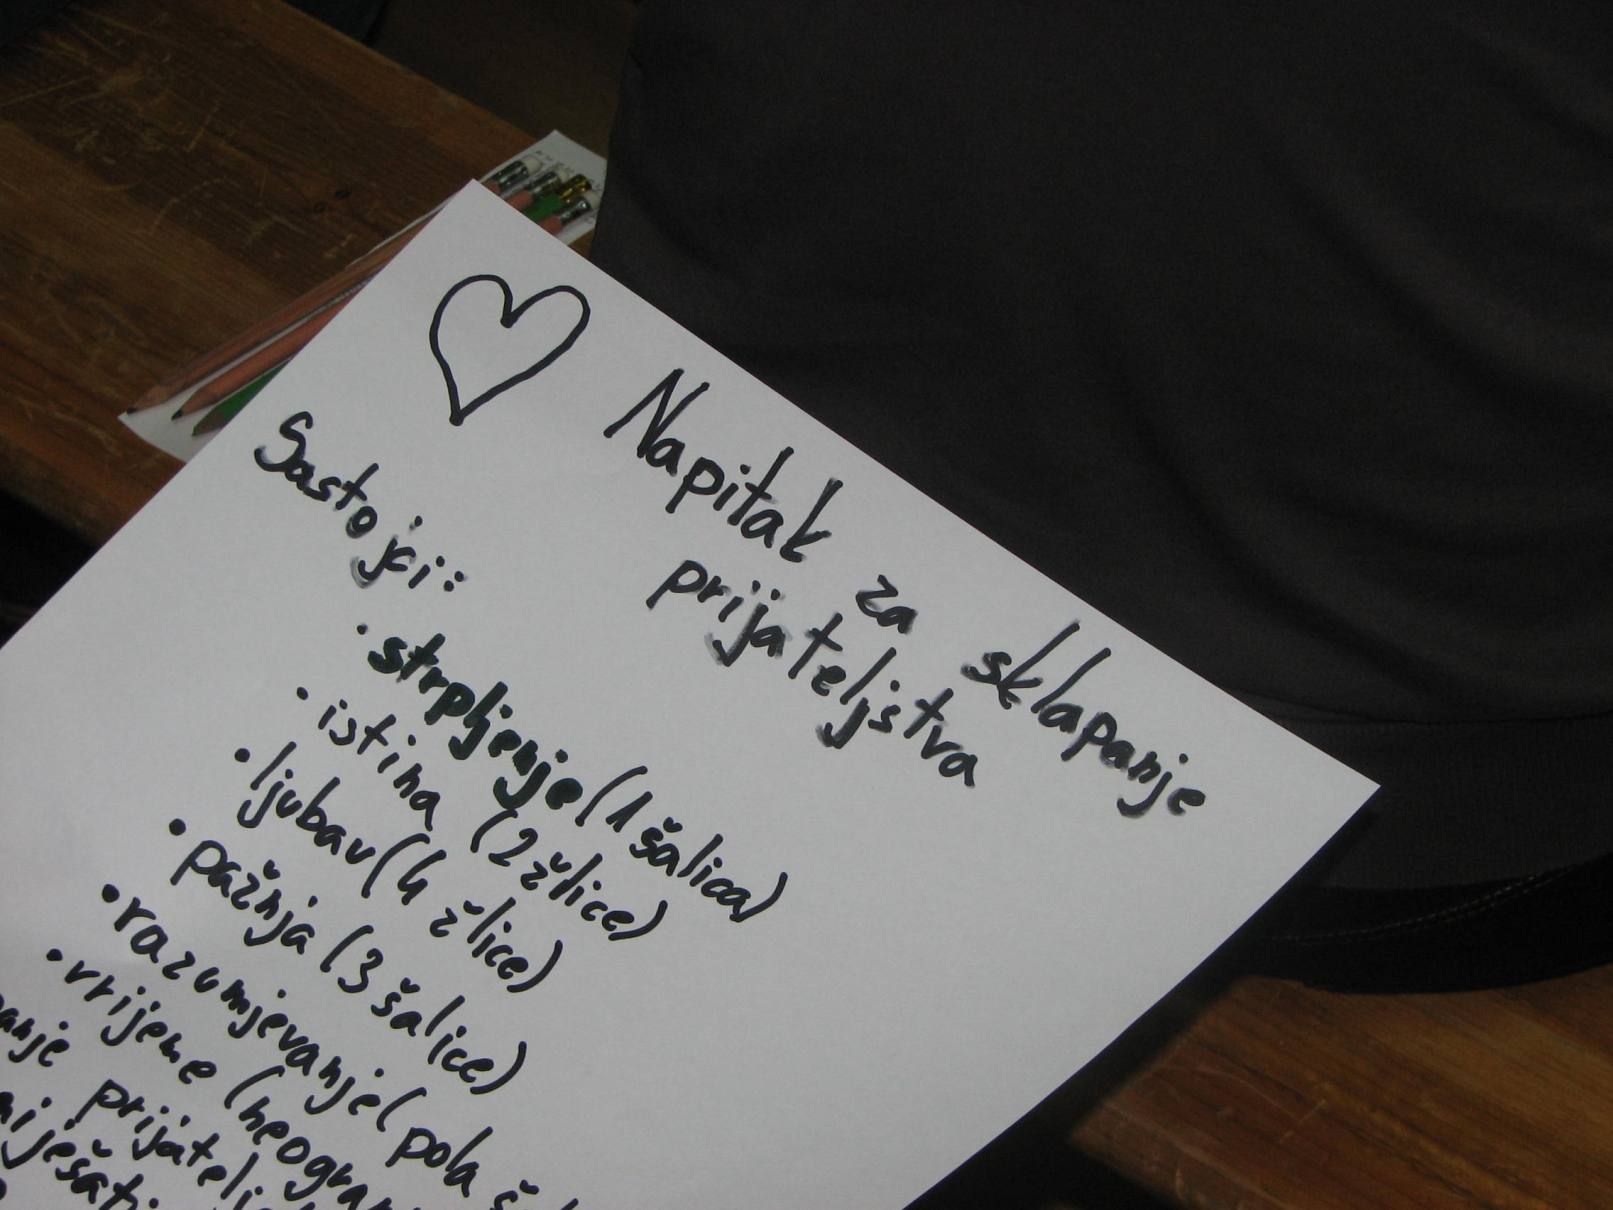 Napitak za sklapanje
prijateljstva
Sastojci:
· strpljenje (1 šalica)
· istina (2 žlice)
· ljubav (4 žlice)
· pažnja (3 šalice)
· razumjevanje (pola
· vrijeme